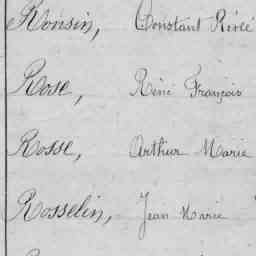 Ronsin, Constant Réné
Rose, Réné François
Rosse, Arthur Marie
Rosselin, Jean Marie